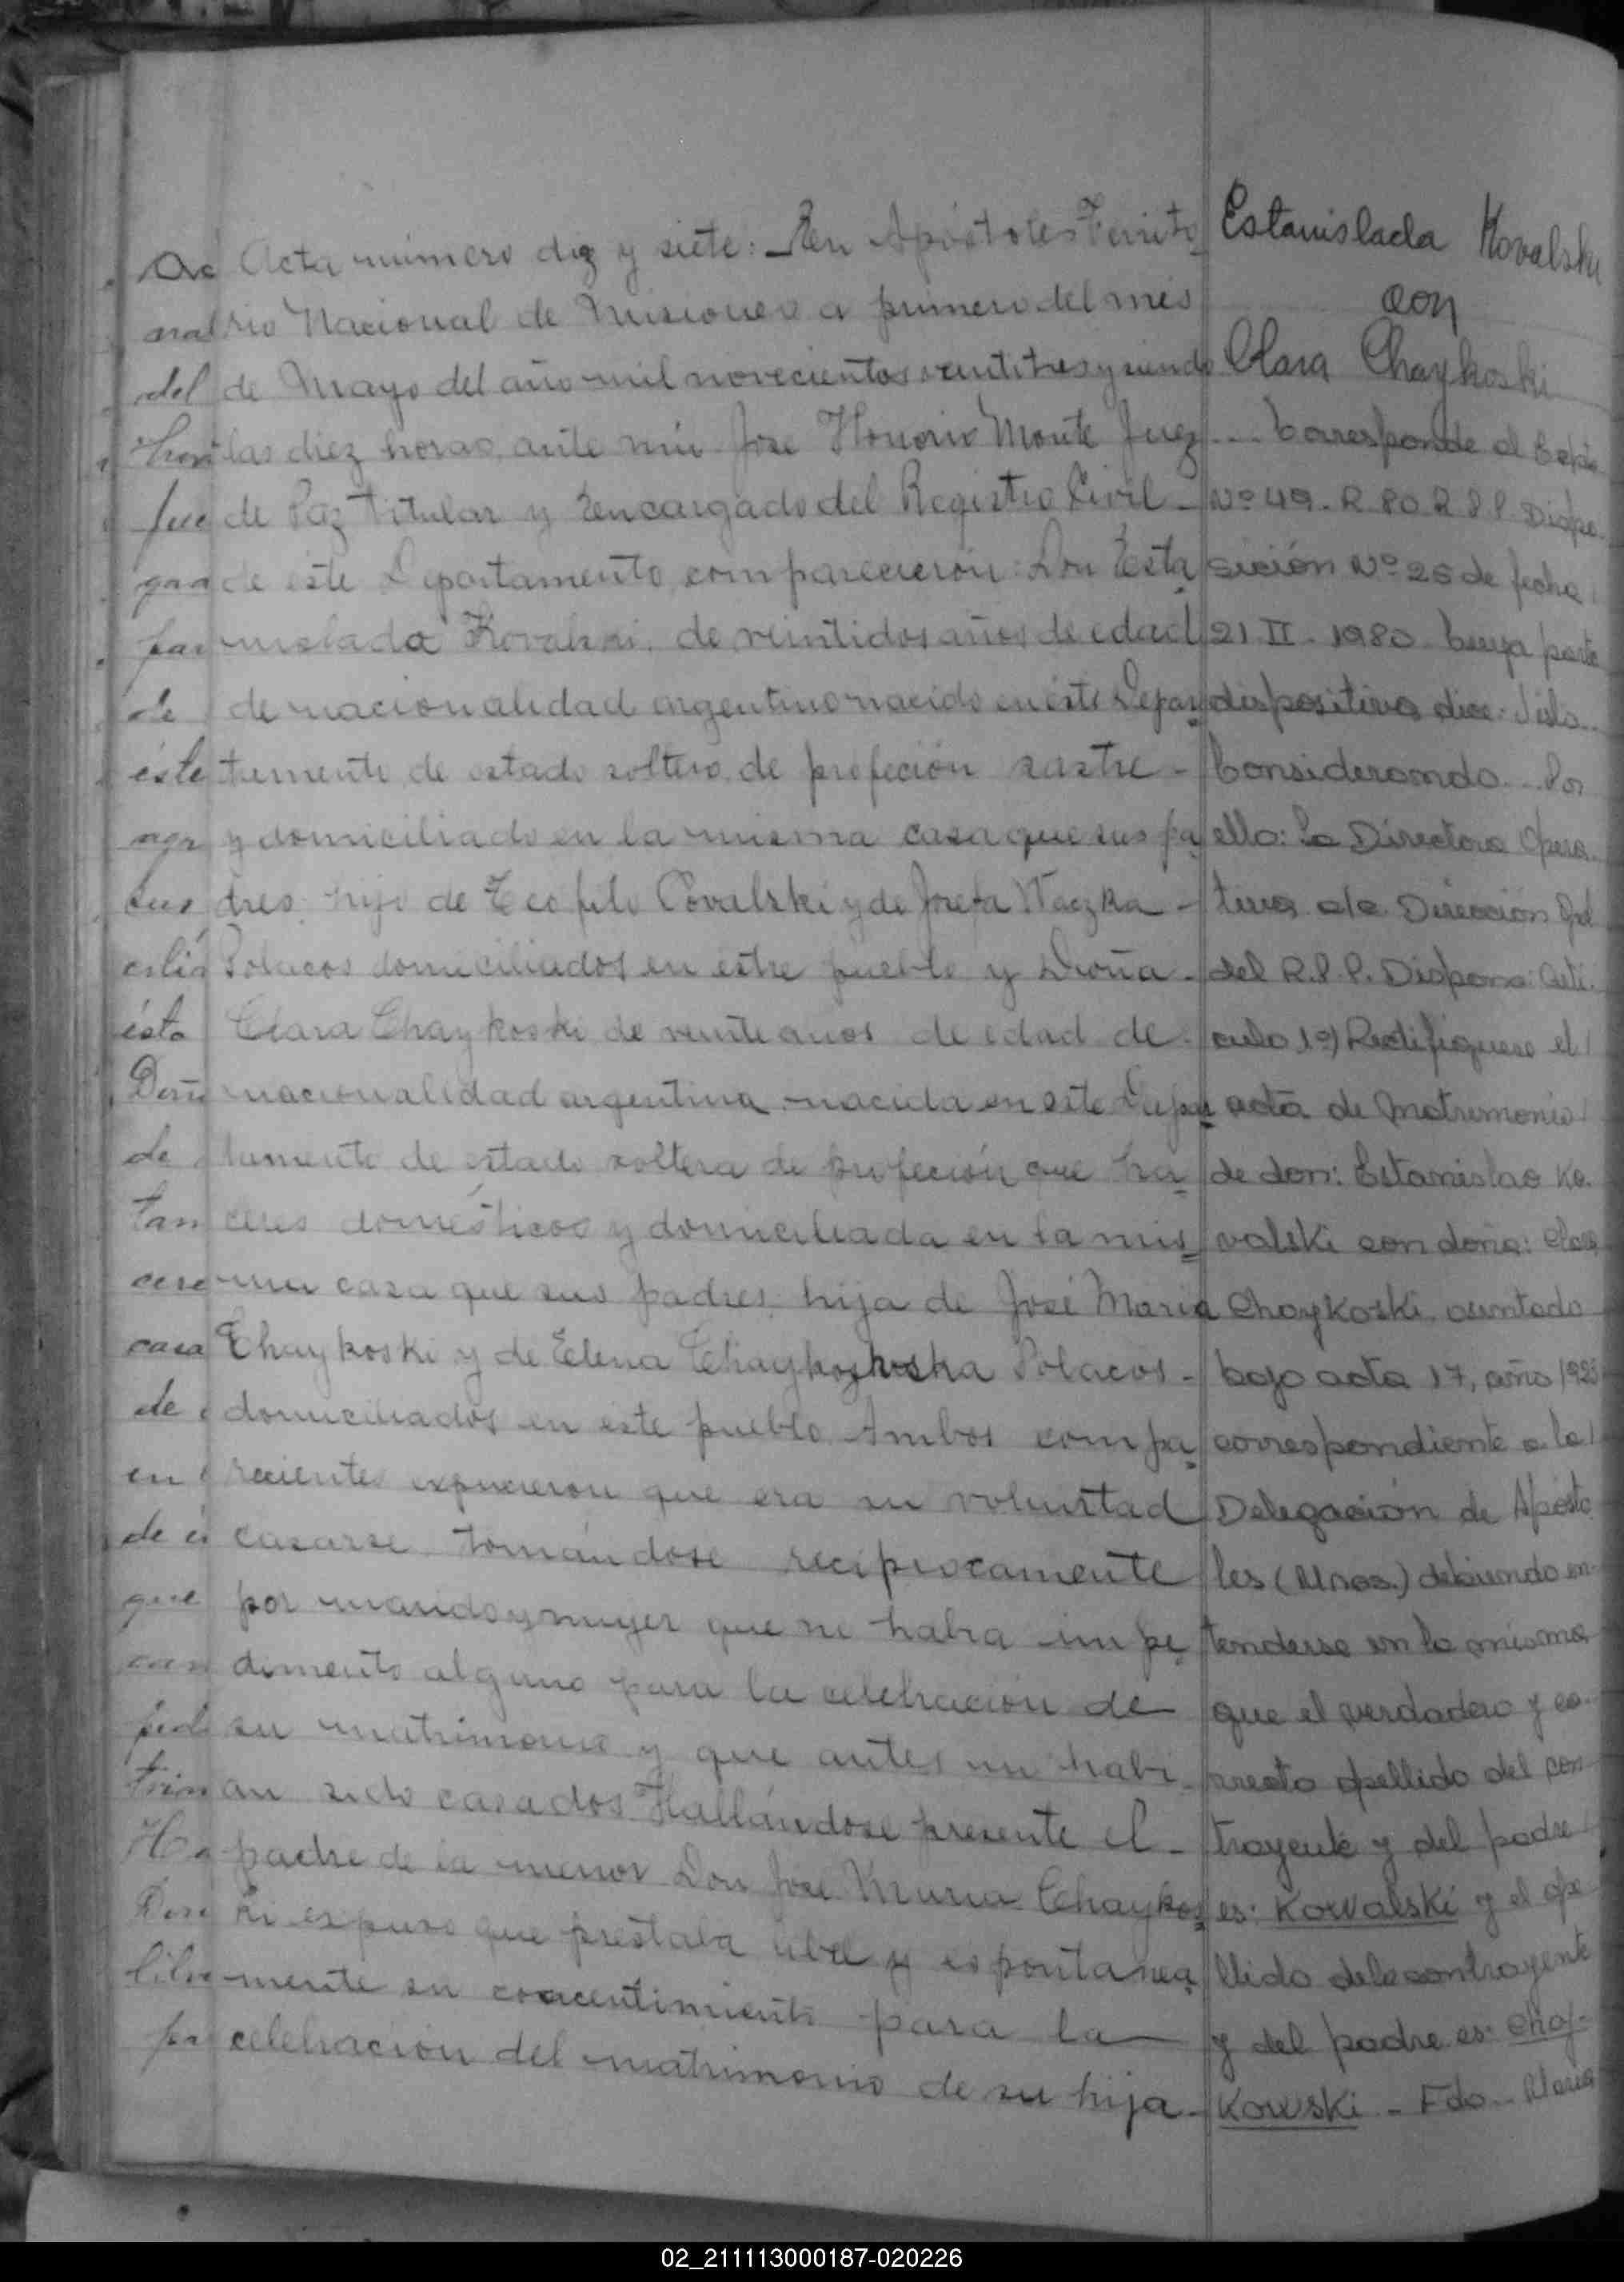 Acta número diez y siete: En Apóstoles Territo
rio Nacional de Misiones a primero del mes
de Mayo del año mil novecientos veintitres y siendo
las diez horas, ante mí Jose Honorio Monte Juez
de Paz Titular y Encargado del Registro Civil -
de este Departamento, comparecieron: Don Esta
nislada Kovalski, de veintidos años de edad
de nacionalidad argentino nacido en éste Depar
tamento, de estado soltero, de profeción sastre -
y domiciliado en la misma casa que sus pa
dres, hijo de Teofilo Covalski y de Josefa Waczka -
Polacos domiciliados en este pueblo y Doña -
Clara Chaykoski de veinte años de edad de -
nacionalidad argentina nacida en este Depar
tamento de estado soltera de profeción que ha
ceres domésticos y domiciliada en la mis
ma casa que sus padres, hija de José Maria
Chaykoski y de Elena Polacos -
domiciliados en este pueblo. Ambos compa
recientes expucieron que era su voluntad
casarse tomándose reciprocamente
por marido y mujer que no habia impe
dimento alguno para la celebracion de
su matrimonio y que antes no habi
an sido casados. Hallándose presente el -
padre de la menor Don Jose Maria Chaykos
ki expuso que prestaba libre y espontanea
mente su concentimiento para la
celebracion del matrimonio de su hija -
Estanislada Kovalski
con
Clara Chaykoski
... Corresponde al Expte
Nº 49 - R 80 R P P. Dispo-
sición Nº 25 de fecha
21 II - 1980 - Cuya parte
dispositiva dice: Visto...
Considerando... Por
ello: La Directora Opera-
tiva de Dirección Gral
del R.P.P. Dispone: Artí-
culo 1º) Rectifiquese el
acta de Matrimonio
de don: Estanislao Ko-
valski con doña: Clara
Chaykoski, asentado
bajo acta 17, año 1923
correspondiente a la
Delegación de Aposto
les (Mnes.) debiendo en-
tenderse en la misma
que el verdadero y co-
rrecto apellido del con
trayente y del padre
es: Kowalski y el ape
llido de la contrayente
y del padre es: Chaj-
kowski - Fdo - Maria
Ac
nal
del
hon
fue
gra
par
de
éste
agr
sus
esta
Doñ
de
tan
cere
casa
de
en
de é
que
cas
pedi
trim
Ha
Don
libre
pa
02_211113000187-020226